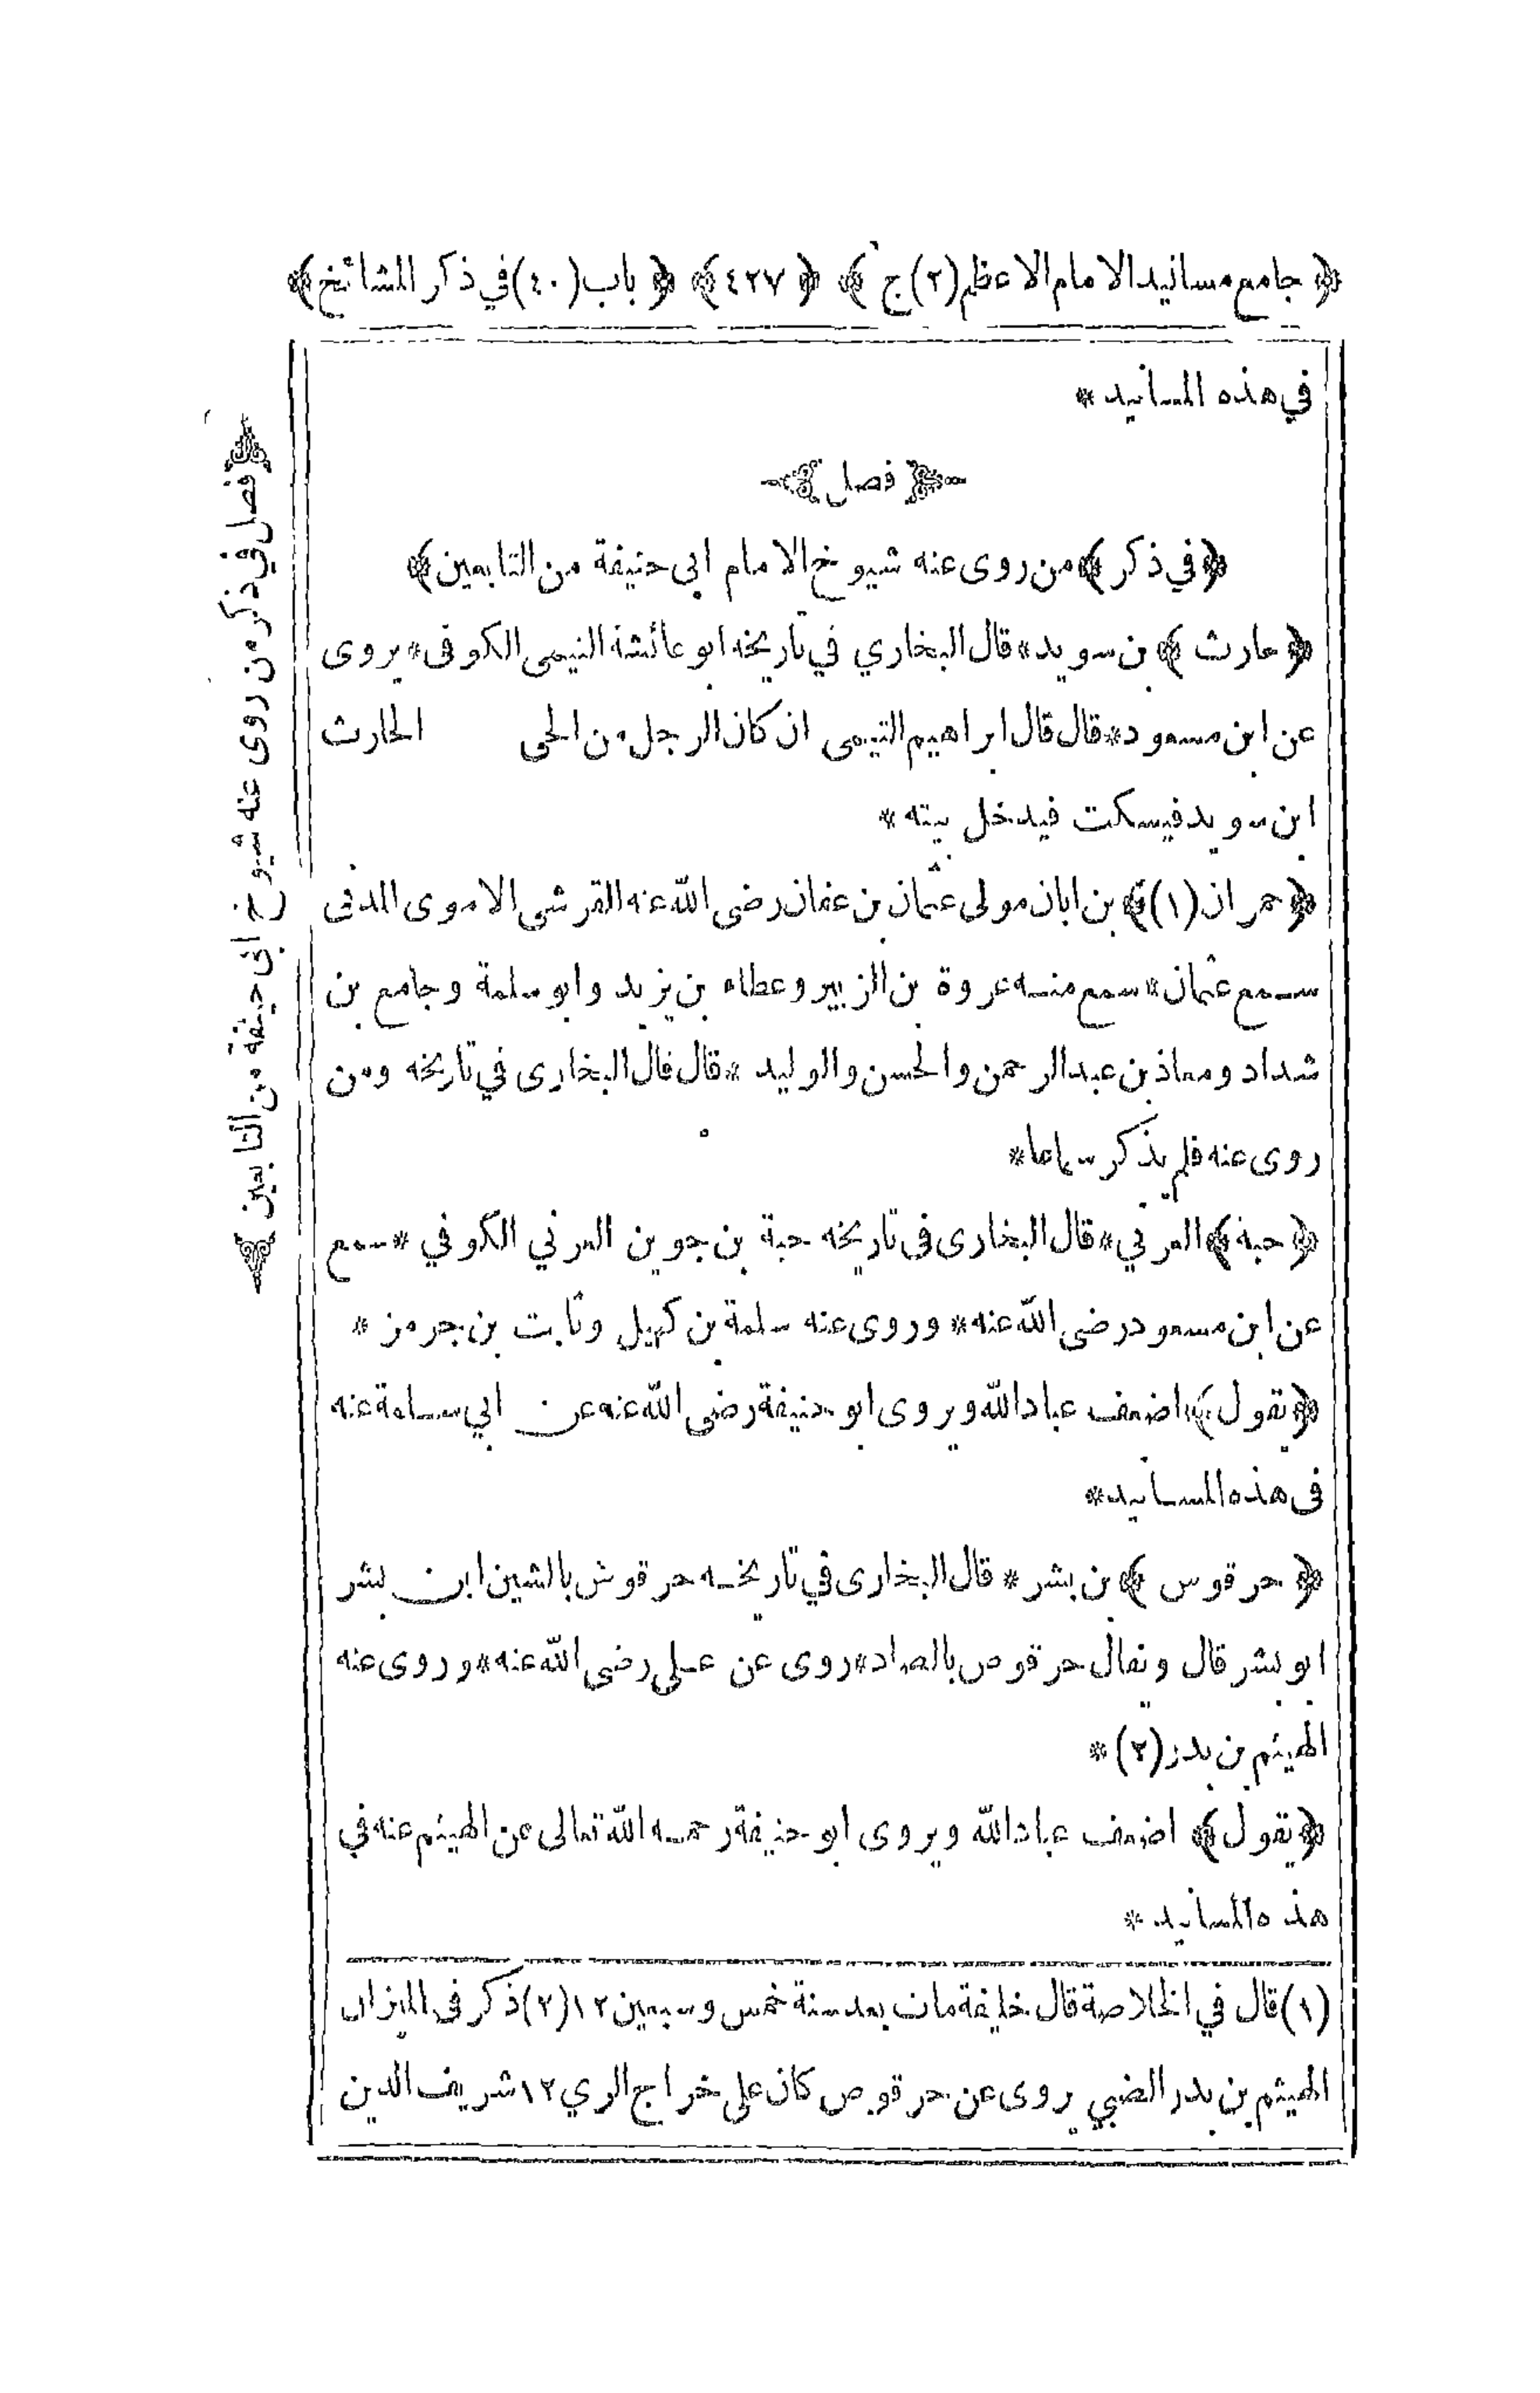 ﴿ جامع مسانيد الامام الاعظم (٢) ج ﴾ ﴿ ٤٢٧ ﴾ ﴿ باب (٤٠) في ذكر المشائخ ﴾
في هذه المسانيد *
﴿ فصل ﴾
﴿ في ذكر ﴾ من روى عنه شيوخ الامام ابى حنيفة من التابعين ﴾
﴿ حارث ﴾ بن سويد * قال البخاري في تاريخه ابو عائشة التيمى الكوفى * يروى
عن ابن مسعود * قال قال ابراهيم التيمى ان كان الرجل من الحى الحارث
ابن سويد فيسكت فيدخل بيته *
﴿ حمران (١) ﴾ بن ابان مولى عثمان بن عفان رضى الله عنه القرشى الاموى المدنى
سمع عثمان * سمع منه عروة بن الزبير وعطاء بن يزيد وابو سلمة وجامع بن
شداد ومعاذ بن عبد الرحمن والحسن والوليد * قال قال البخارى في تاريخه ومن
روى عنه فلم يذكر سماعا *
﴿ حبة ﴾ العرني * قال البخارى فى تاريخه حبة بن جوين العرني الكوفي * سمع
عن ابن مسعود رضى الله عنه * وروى عنه سلمة بن كهيل وثابت بن جرمز *
﴿ يقول ﴾ اضعف عباد الله ويروى ابو حنيفة رضى الله عنه عن ابي سلمة عنه
فى هذه المسانيد *
﴿ حرقوس ﴾ بن بشر * قال البخارى في تاريخه حرقوش بالشين ابن بشر
ابو بشر قال ويقال حرقوص بالصاد * روى عن على رضى الله عنه * وروى عنه
الهيثم بن بدر (٢) *
﴿ يقول ﴾ اضعف عباد الله ويروى ابو حنيفة رحمه الله تعالى عن الهيثم عنه في
هذه المسانيد *
(١) قال في الخلاصة قال خليفة مات بعد سنة خمس وسبعين ١٢ (٢) ذكر فى الميزان
الهيثم بن بدر الضبي يروى عن حرقوص كان على خراج الري ١٢ شريف الدين
﴿ فصل في ذكر من روى عنه شيوخ ابى حنيفة من التابعين ﴾